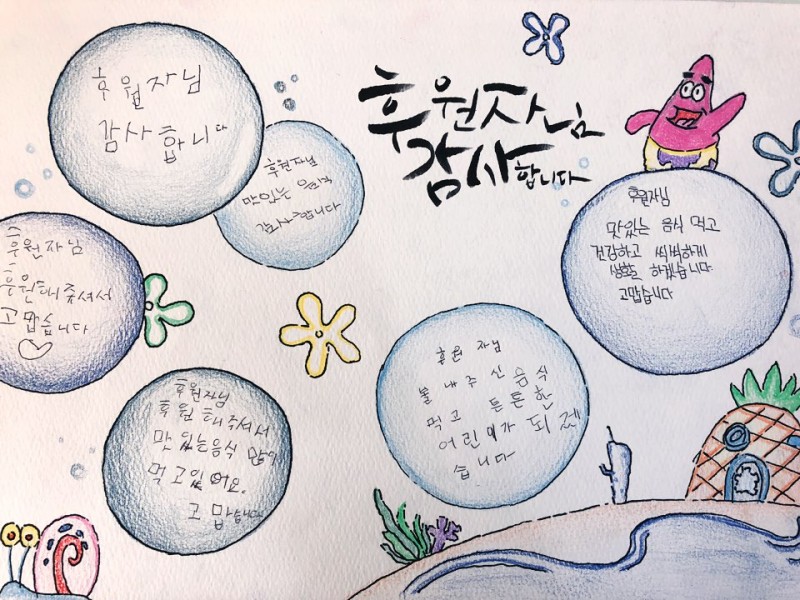 후원자님
감사합니다
후원자님
감사합니다
후원자님
맛있는 음식
감사합니다
후원자님
맛있는 음식 먹고
건강하고 씩씩하게
생활 하겠습니다
고맙습니다
후원자님
후원해 주셔서
고맙습니다
후원 자님
보내주신 음식
먹고 튼튼한
어린이가 되겠
습니다
후원자님
후원해주셔서
맛있는음식 많이
먹고있어요.
고맙습니다